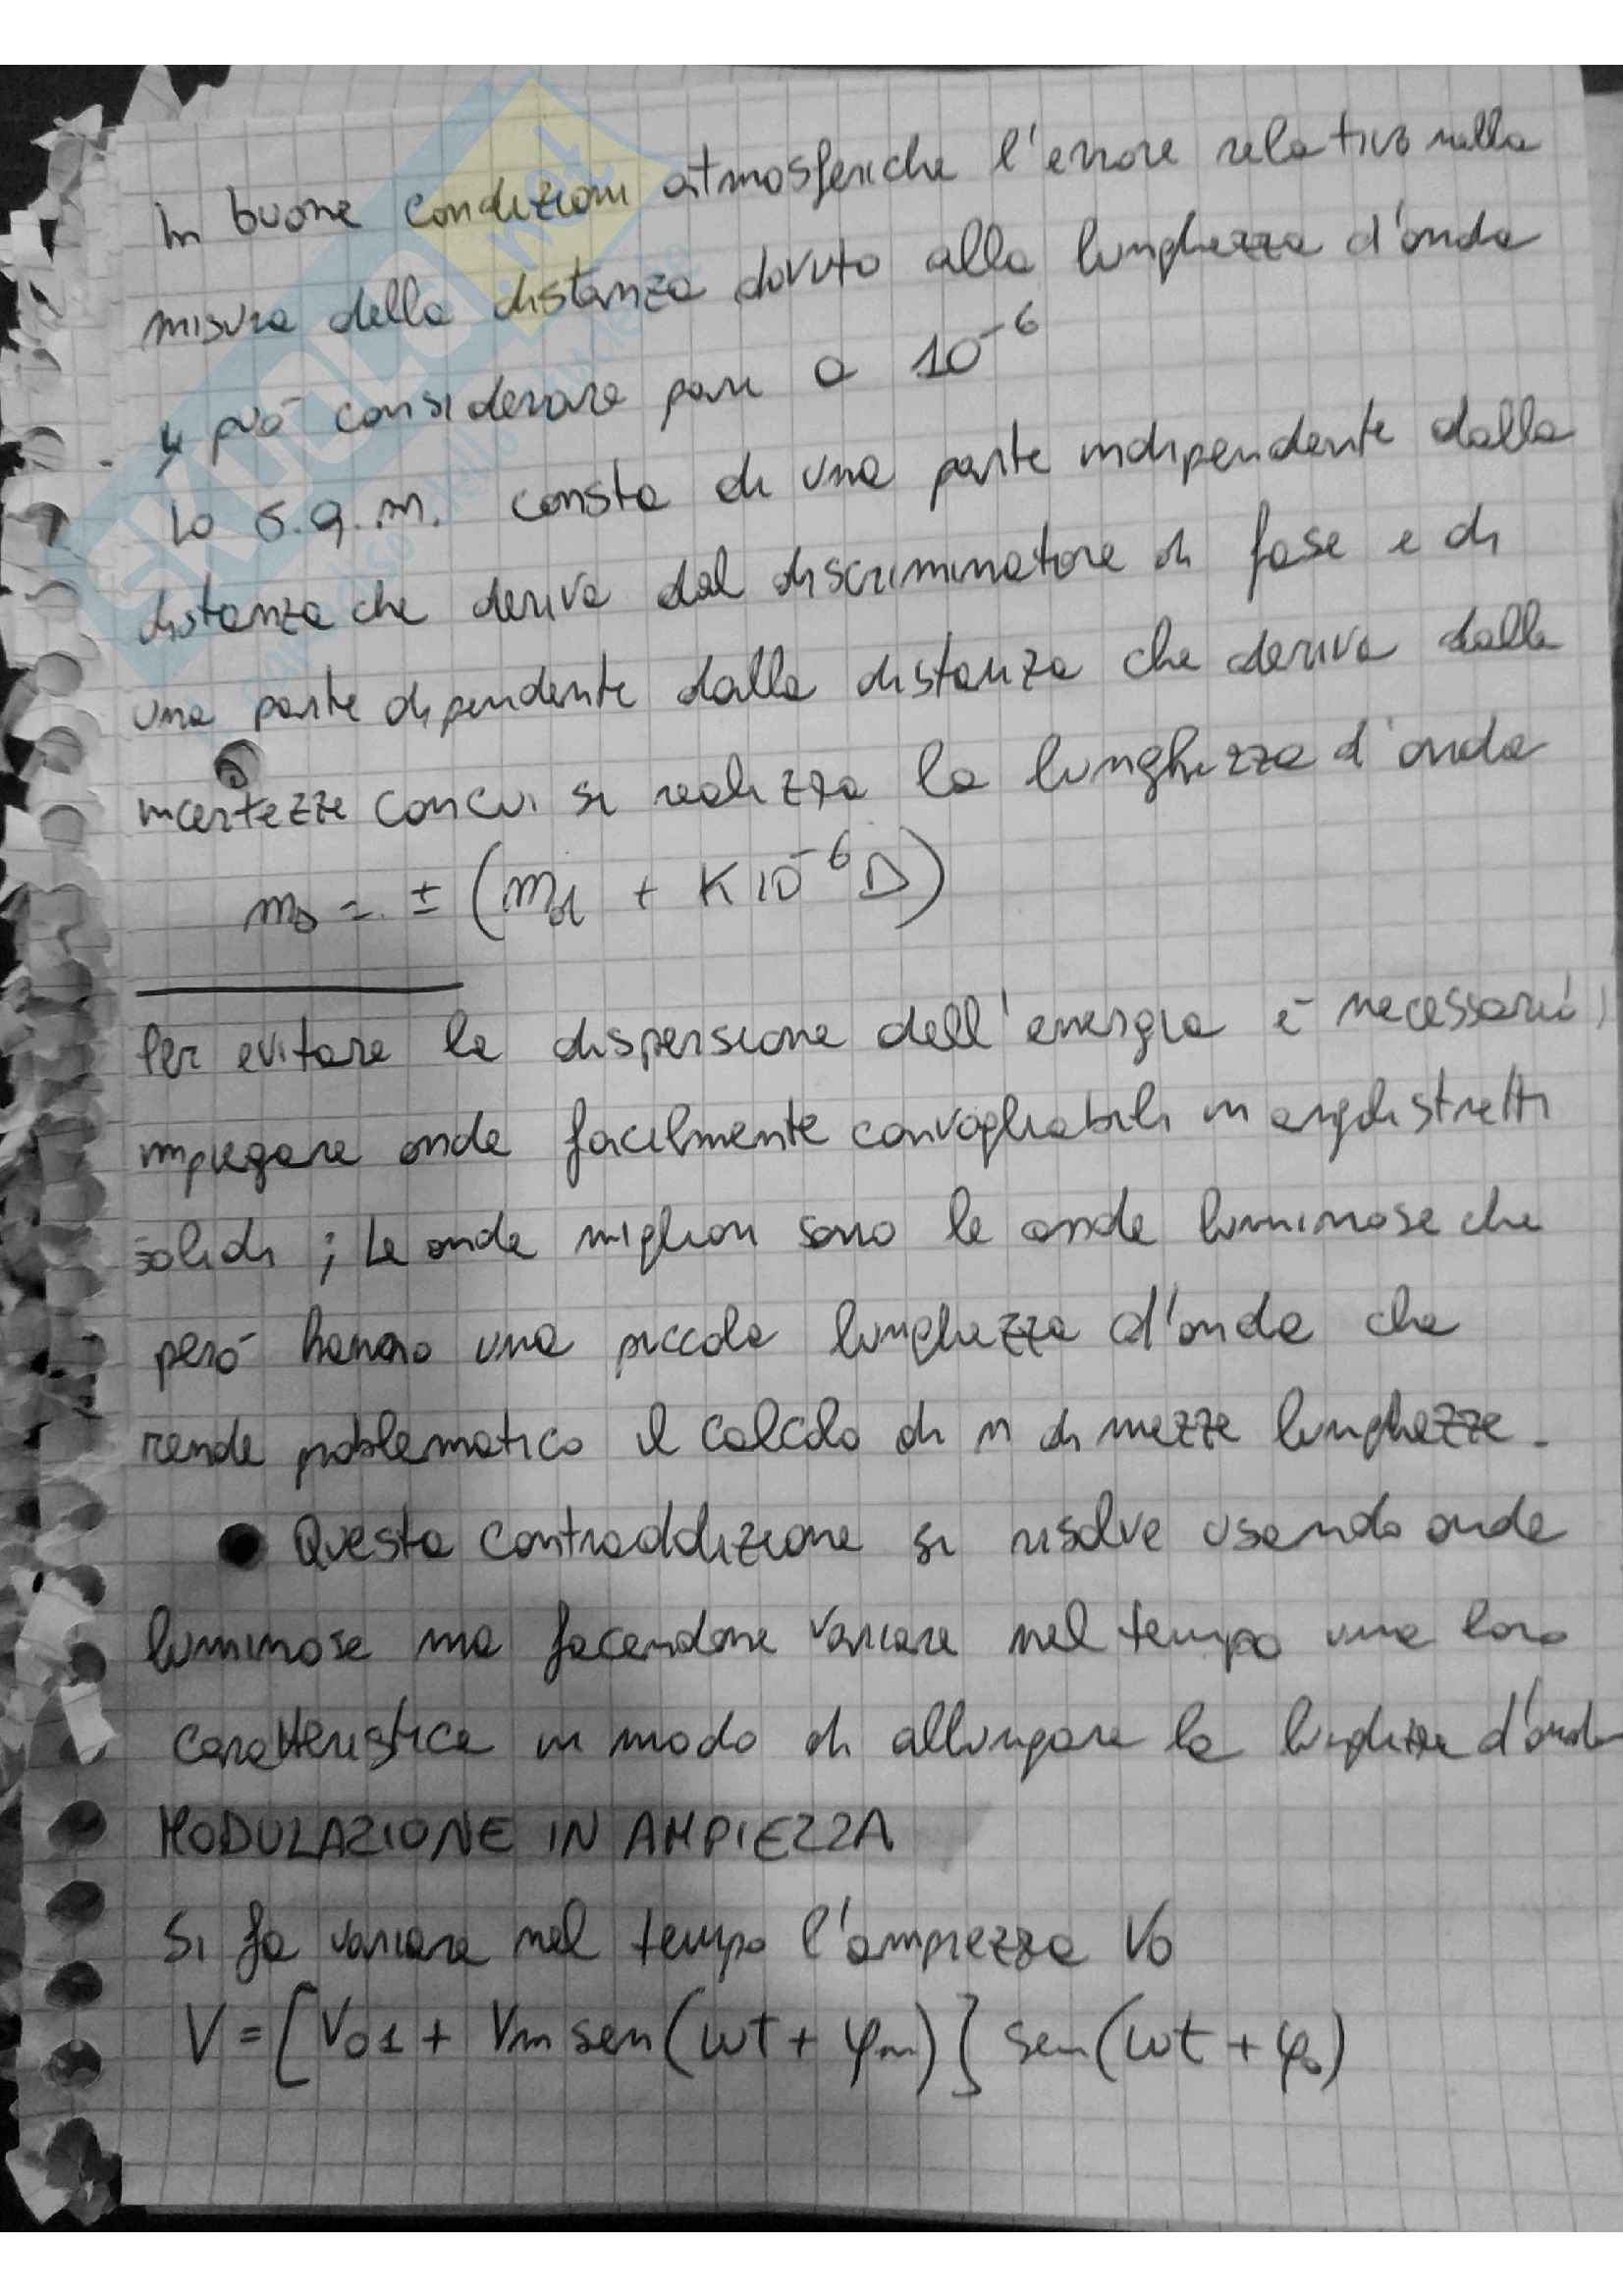 In buone condizioni atmosferiche l'errore relativo nella
misura della distanza dovuto alla lunghezza d'onda
si può considerare pari a 10⁻⁶
Lo s.q.m. consta di una parte indipendente dalla
distanza che deriva dal discriminatore di fase e di
una parte dipendente dalla distanza che deriva dalle
incertezze con cui si realizza la lunghezza d'onda
m_D = ± (m_d + K 10⁻⁶ D)
Per evitare la dispersione dell'energia è necessario
impiegare onde facilmente convogliabili in angoli stretti
solidi ; Le onde migliori sono le onde luminose che
però hanno una piccola lunghezza d'onda che
rende problematico il calcolo di n di mezze lunghezze.
● Questa contraddizione si risolve usando onde
luminose ma facendone variare nel tempo una loro
caratteristica in modo di allungare la lunghezza d'onda
MODULAZIONE IN AMPIEZZA
Si fa variare nel tempo l'ampiezza V₀
V = [V₀₁ + Vm sen(ωt + φm)] sen(ωt + φ₀)